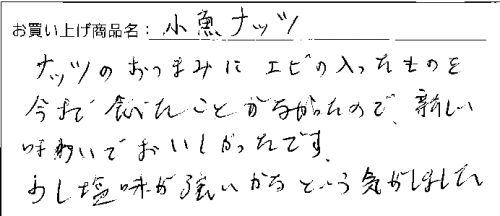 お買い上げ商品名：小魚ナッツ
ナッツのおつまみに エビの入ったものを
今まで食べたことがなかったので、新しい
味わいでおいしかったです。
少し塩味が強いかなという気がしました